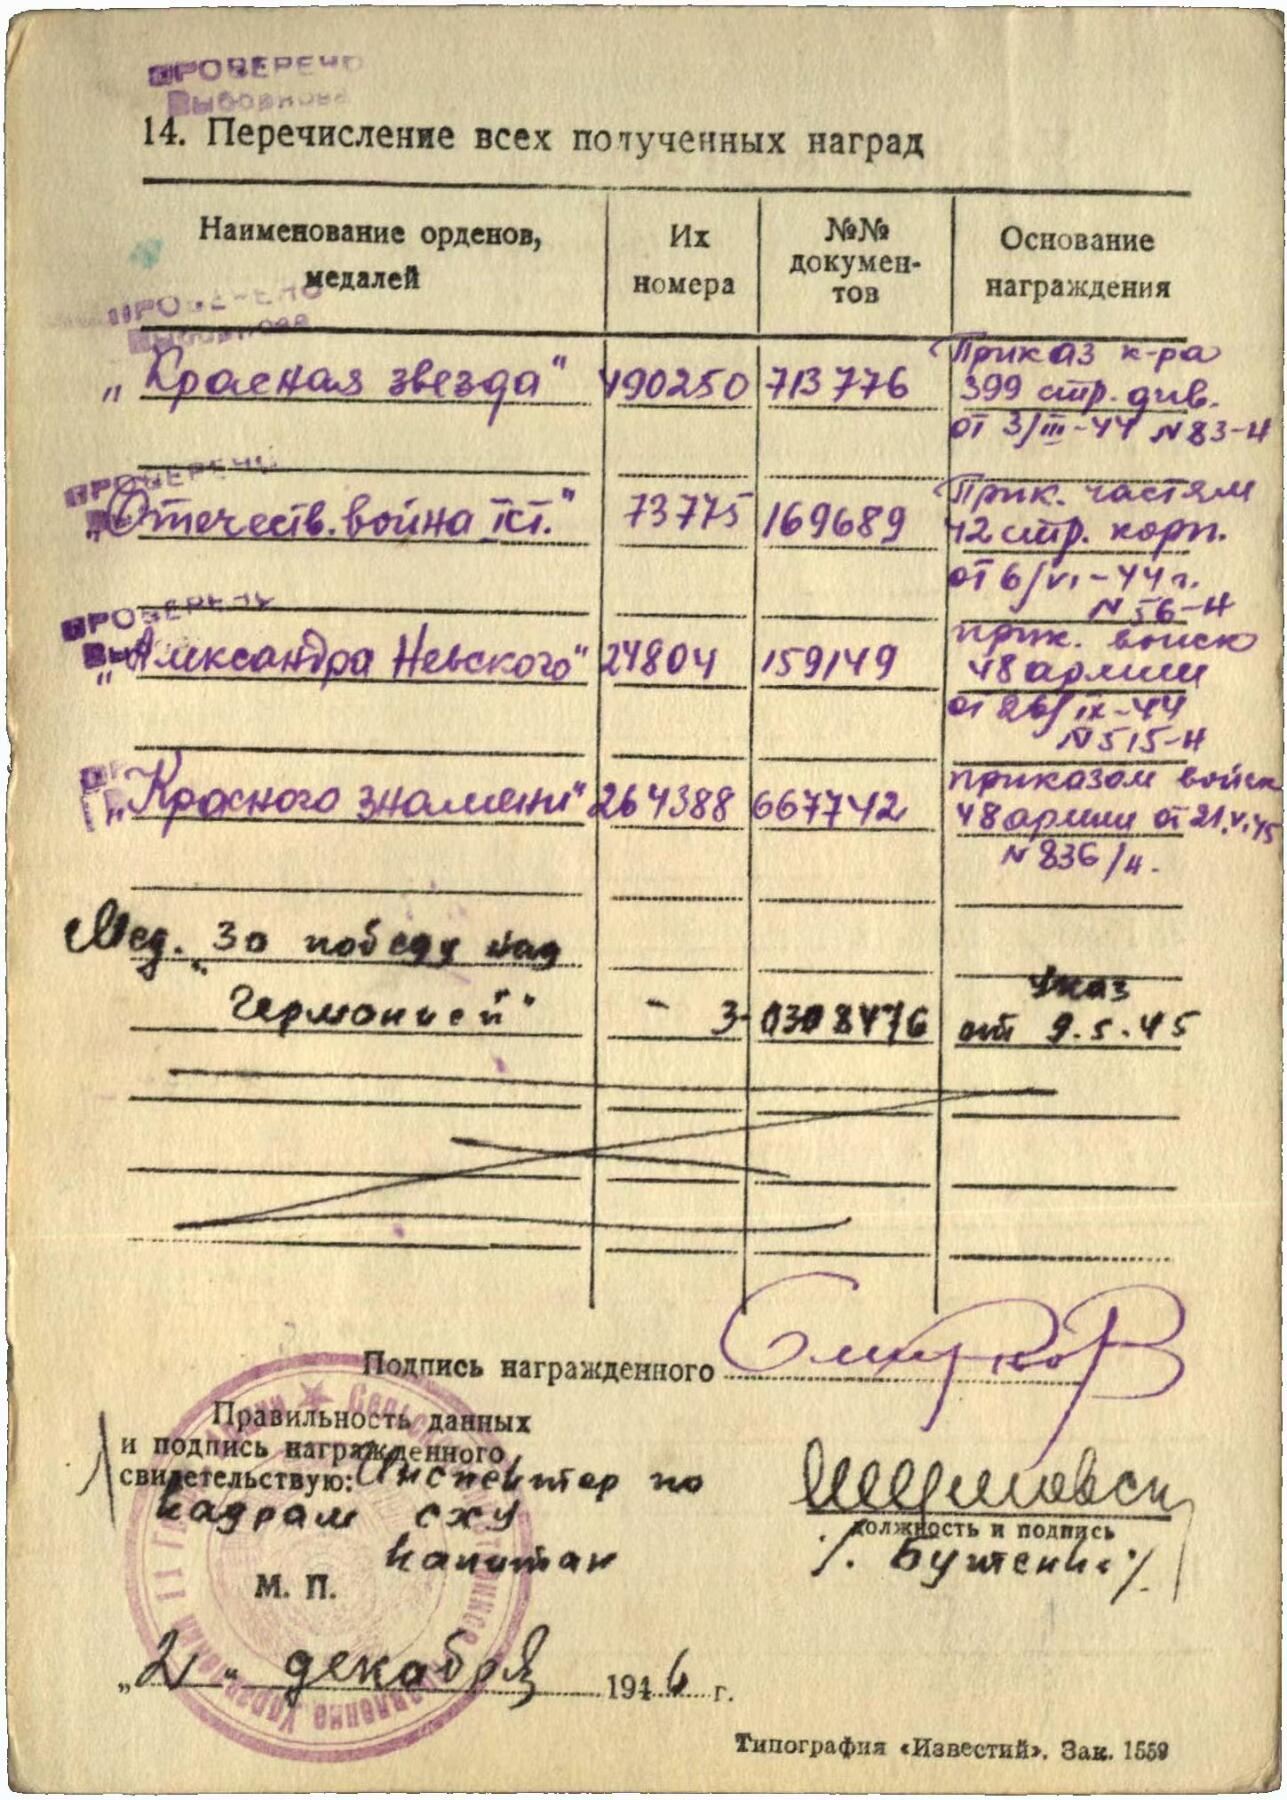 ПРОВЕРЕНО
Выборнова
14. Перечисление всех полученных наград
Наименование орденов, медалей
Их номера
№№ докумен-тов
Основание награждения
ПРОВЕРЕНО
Выборнова
„Красная звезда" 490250 713776 Приказ к-ра
399 стр. див.
от 3/III-44 N 83-Н
ПРОВЕРЕНО
„Отечеств. война II ст." 73775 169689 Прик. частям
42 стр. корп.
от 6/VI-44 г.
N 56-Н
ПРОВЕРЕНО
„Александра Невского" 24804 159149 прик. войск
48 армии
от 26/IX-44
N 515-Н
„Красного знамени" 264388 667742 приказом войск
48 армии от 21.V.45
N 836/н.
Мед. „За победу над
Германией" - З- 0308476 Указ
от 9.5.45
Подпись награжденного Смирнов
Правильность данных
и подпись награжденного
свидетельствую: Инспектор по
кадрам СХУ
капитан
должность и подпись
М. П.
„2" декабря 1946 г.
Типография «Известий». Зак. 1559